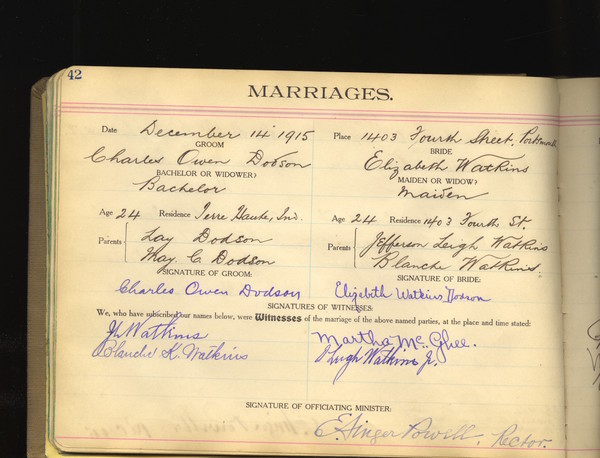 42
MARRIAGES.
Date December 14 1915 Place 1403 Fourth Street, Portsmouth
GROOM BRIDE
Charles Owen Dodson Elizabeth Watkins
BACHELOR OR WIDOWER? MAIDEN OR WIDOW?
Bachelor Maiden
Age 24 Residence Terre Haute, Ind. Age 24 Residence 1403 Fourth St.
Parents Lay Dodson Parents Jefferson Leigh Watkins
May C. Dodson Blanche Watkins.
SIGNATURE OF GROOM: SIGNATURE OF BRIDE:
Charles Owen Dodson Elizabeth Watkins Dodson
SIGNATURES OF WITNESSES:
We, who have subscribed our names below, were Witnesses of the marriage of the above named parties, at the place and time stated:
Watkins Martha Mc.Ghee.
Blanche K. Watkins Hugh Watkins Jr.
SIGNATURE OF OFFICIATING MINISTER:
Powell, Rector.